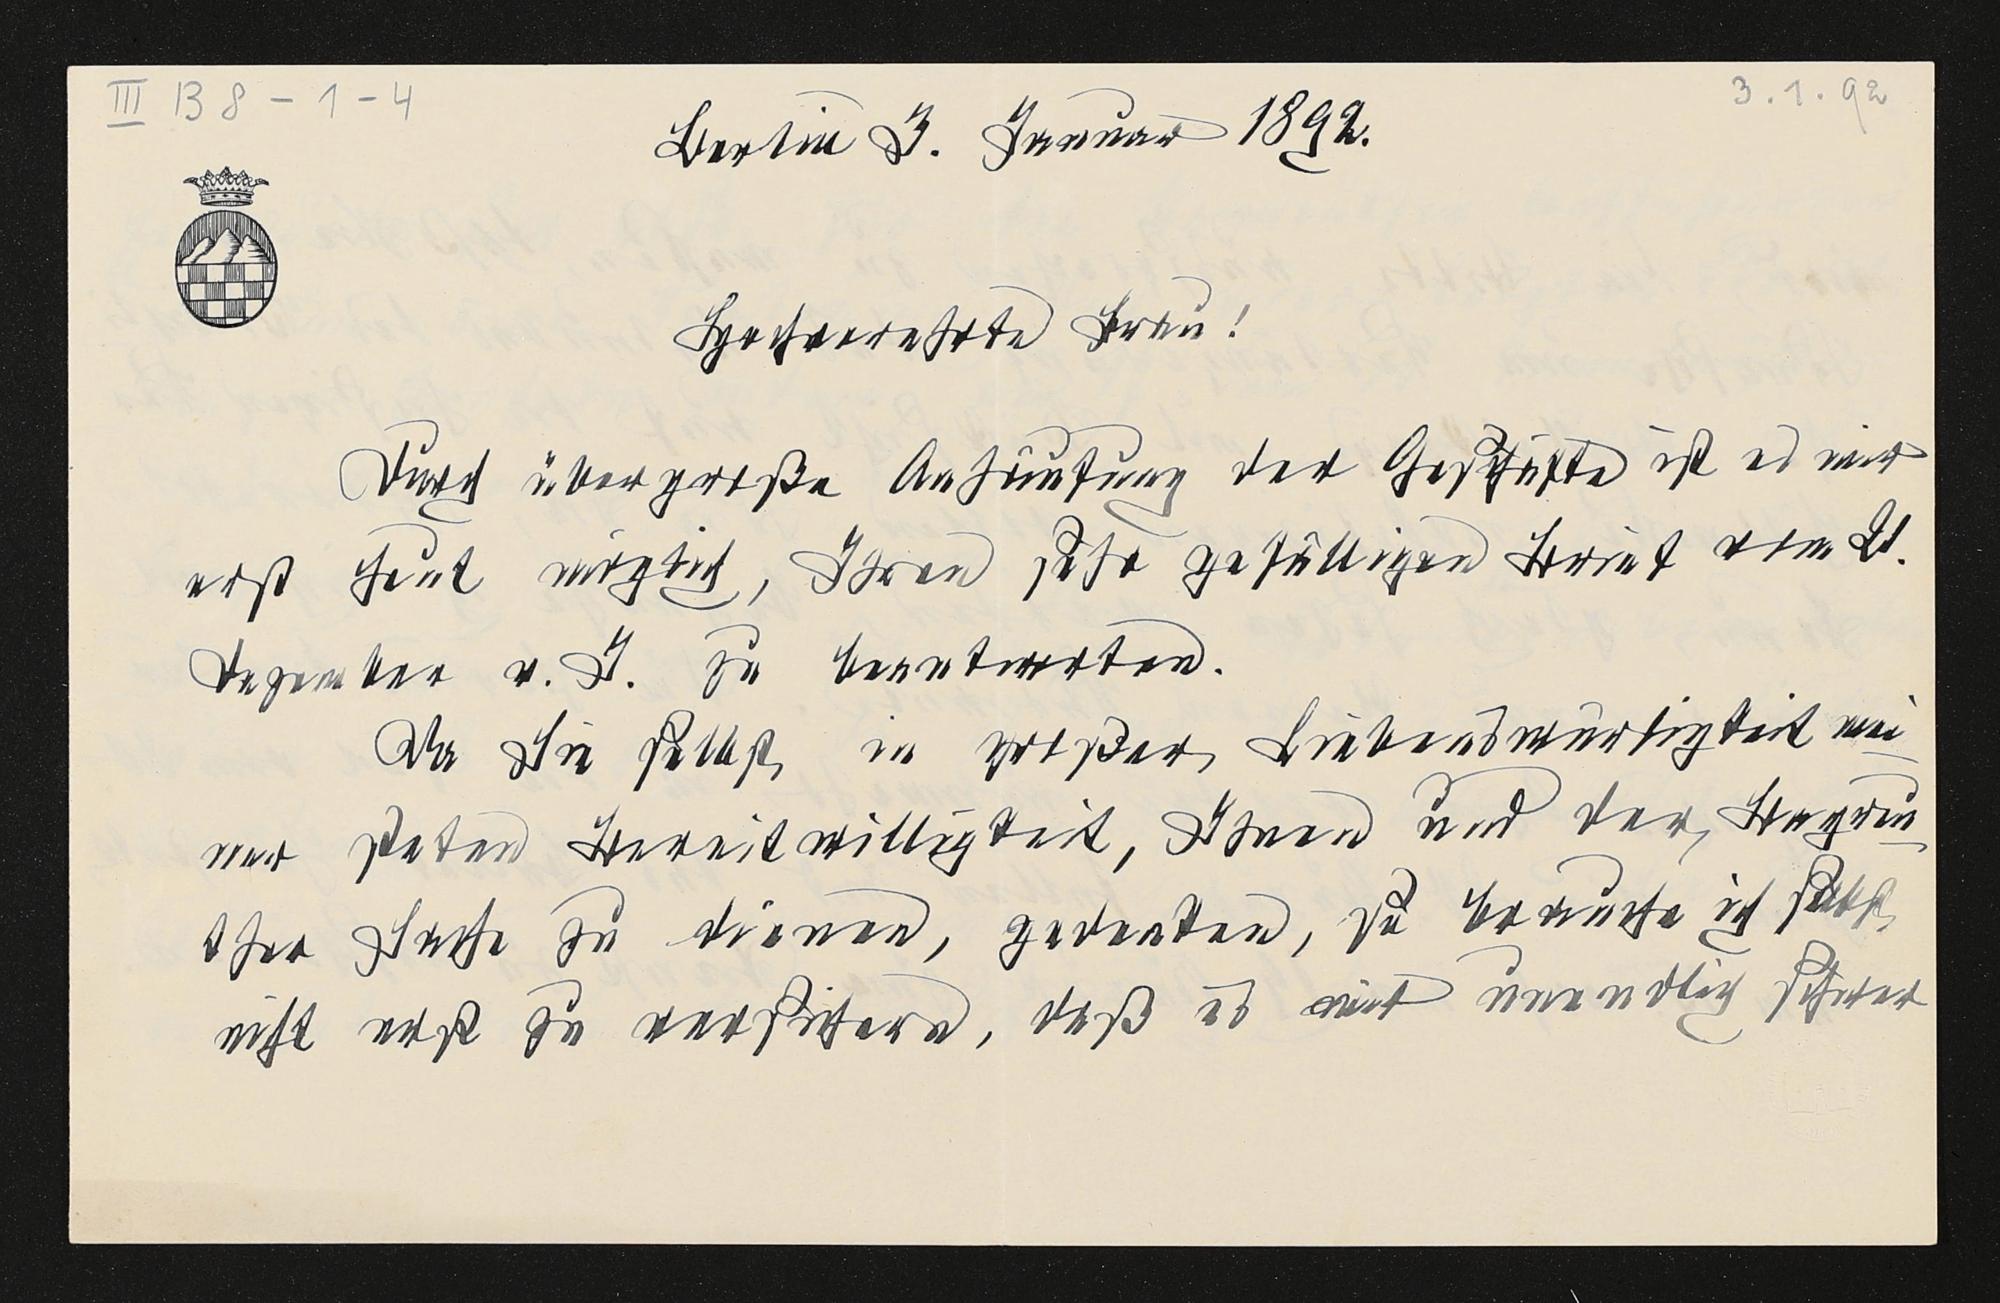 III B 8 - 1 - 4
3.1.92
Berlin 3. Januar 1892.
Hochverehrte Frau!
Durch übergroße Anhäufung der Geschäfte ist es mir
erst heut möglich, Ihren sehr gefälligen Brief vom 21.
Dezember v. J. zu beantworten.
Da Sie selbst in großer Liebenswürdigkeit mei-
ner steten Bereitwilligkeit, Ihnen und der Bayreu-
ther Sache zu dienen, gedenken, so brauche ich selbst
nicht erst zu versichern, daß es mir unendlich schwer